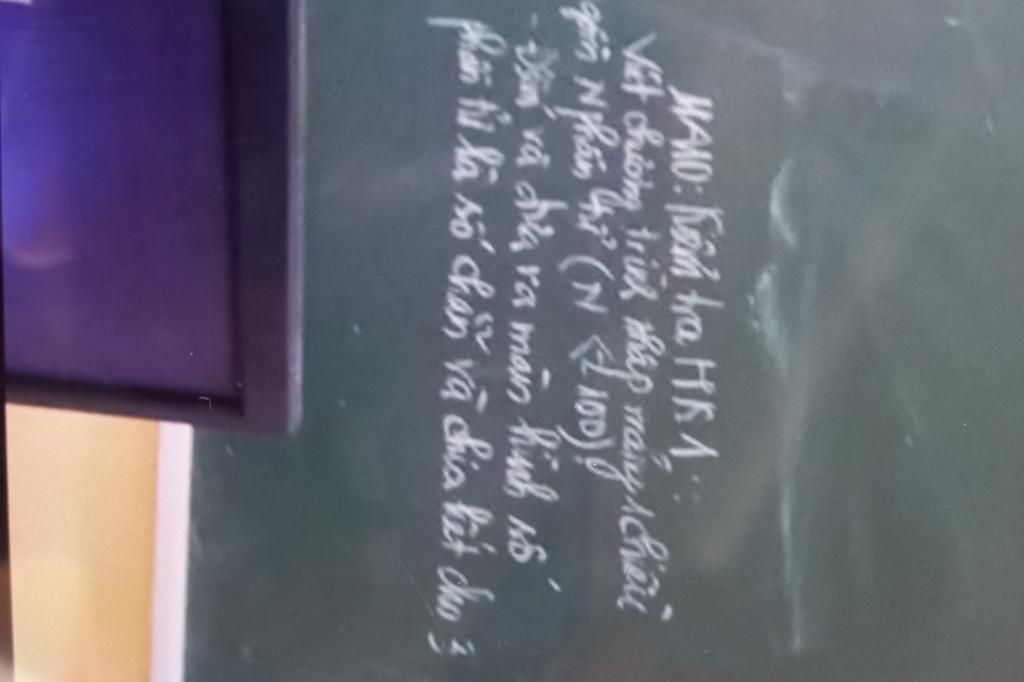 11A10: Kiểm tra HK1:
Viết chương trình nhập mảng 1 chiều
gồm N phần tử (N <= 100)
- Đếm và đưa ra màn hình số
phần tử là số chẵn và chia hết cho